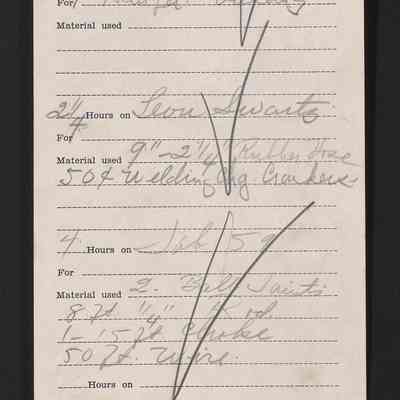 For/ Transfer
Material used
2 1/4 Hours on Leon Swartz
For
Material used 9"-2 1/4" Rubber Hose
50¢ Welding Crankers
4 Hours on Job 59
For
Material used 2. Ball Joints
8 ft. 1/4" Rod
1-15 ft. Choke
50 ft. Wire.
Hours on